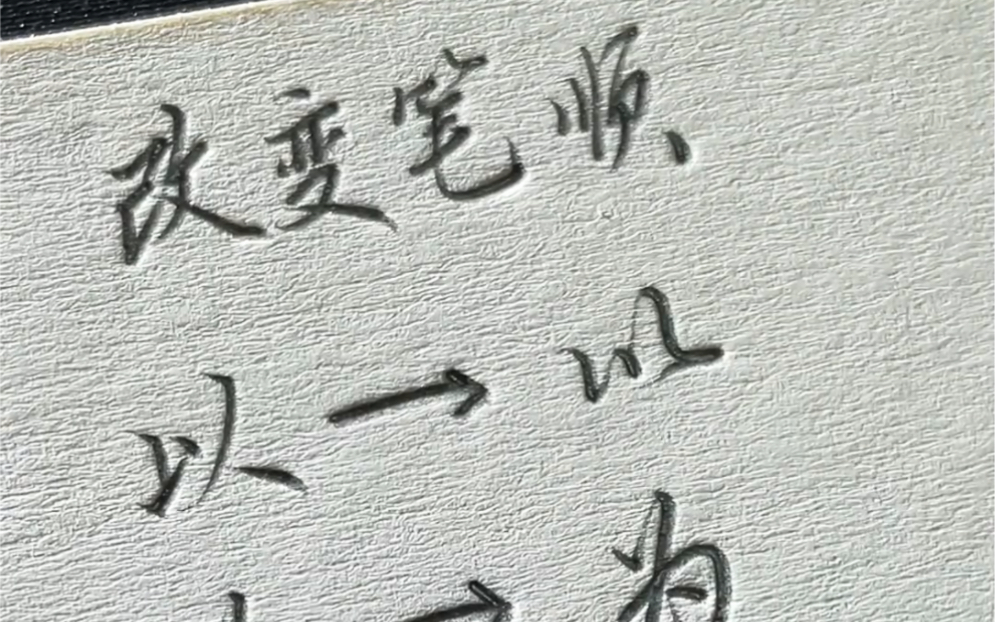 改变笔顺
以→以
→为